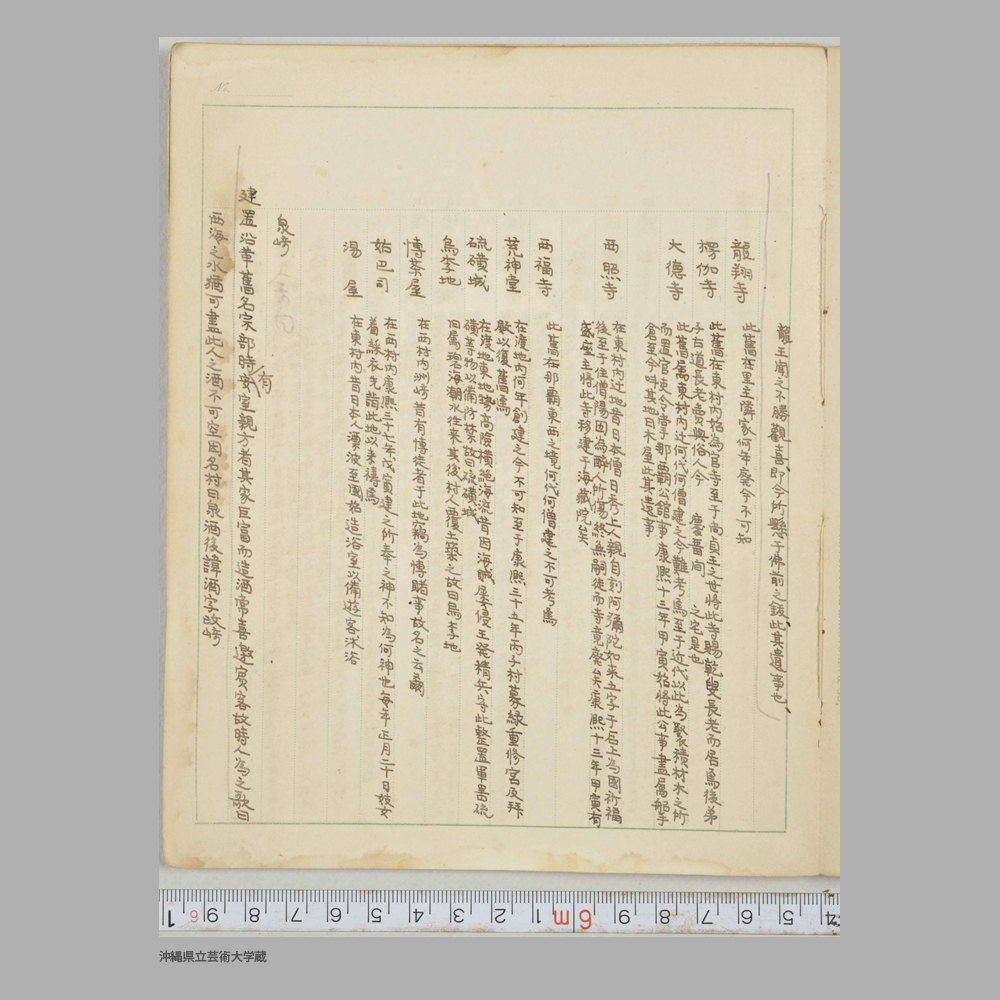 龍王聞之不勝觀喜、即今所縣于佛前之鈸此其遺事也、
龍翔寺
此舊在里主隣家何年廢今不可知
楞伽寺
此舊在東村內始為官寺至于尚貞王之世將此寺賜乾叟長老而居焉後弟
子古道長老賣與俗人今 慶 之宅是也
大德寺
此舊屬東村內辻何代何僧建之今難考焉至于近代以此為聚積材木之所
而置官吏令掌那覇公館事康熙十三年甲寅始將此公事盡屬船手
倉至今叫其地曰木屋此其遺事
西照寺
在東村內辻地昔日本僧日秀上人親自刻阿彌陀如来五字于石上為國祈福
後至于住僧陽因為醉人所傷終無嗣徒而寺竟廢矣康熙十三年甲寅有
盛座主將此寺移建于海藏院矣
西福寺
此舊在那覇東西之境何代何僧建之不可考焉
荒神堂
在渡地內何年創建之今不可知至于康熙三十五年丙子村募緣重修宮及拜
殿以復舊焉
硫磺城
在渡地東地勢高險橫絶海流昔因海賊屡侵王発精兵守此整置軍器硫
磺等物以備防禦故曰硫磺城
烏李地
旧屬瑞海潮水往来其後村人覆土築之故曰烏李地
愽茶屋
在西村內洲崎昔有愽徒者于此地竊為愽賭事故名之云爾
始巴司
在西村內康熙三十七年戊寅建之所奉之神不知為何神也每年正月二十日妓女
着綵衣先詣此地以来禱焉
湯屋
在東村內昔日本人漂波至國始造浴室以備遊客沐浴
泉崎
建置沿革舊名宗部時有安室親方者其家巨富而造酒常喜邀賓客故時人為之歌曰
西海之水猶可盡此人之酒不可空因名村曰泉酒後諱酒字改崎
No.
1 6 9 8 7 6 5 4 3 2 1 6m 9 8 7 6 5 4
沖縄県立芸術大学蔵